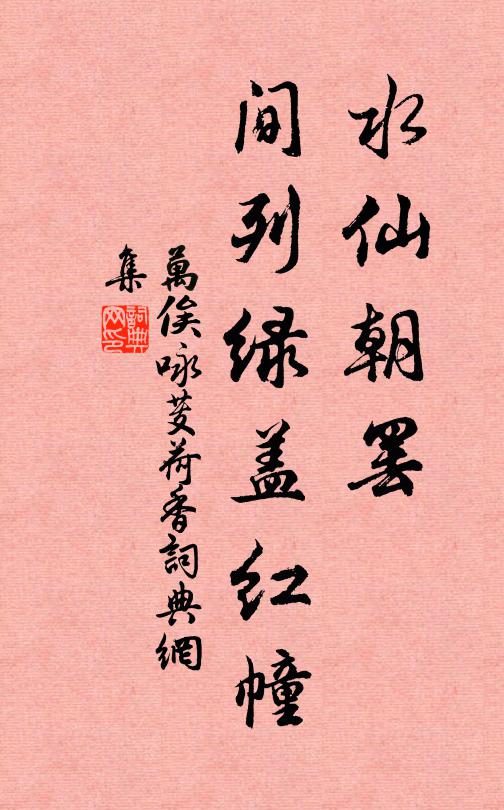 水仙朝罢
间列绿盖红幢
萬俟咏芰荷香詞典網
集
詞典网印